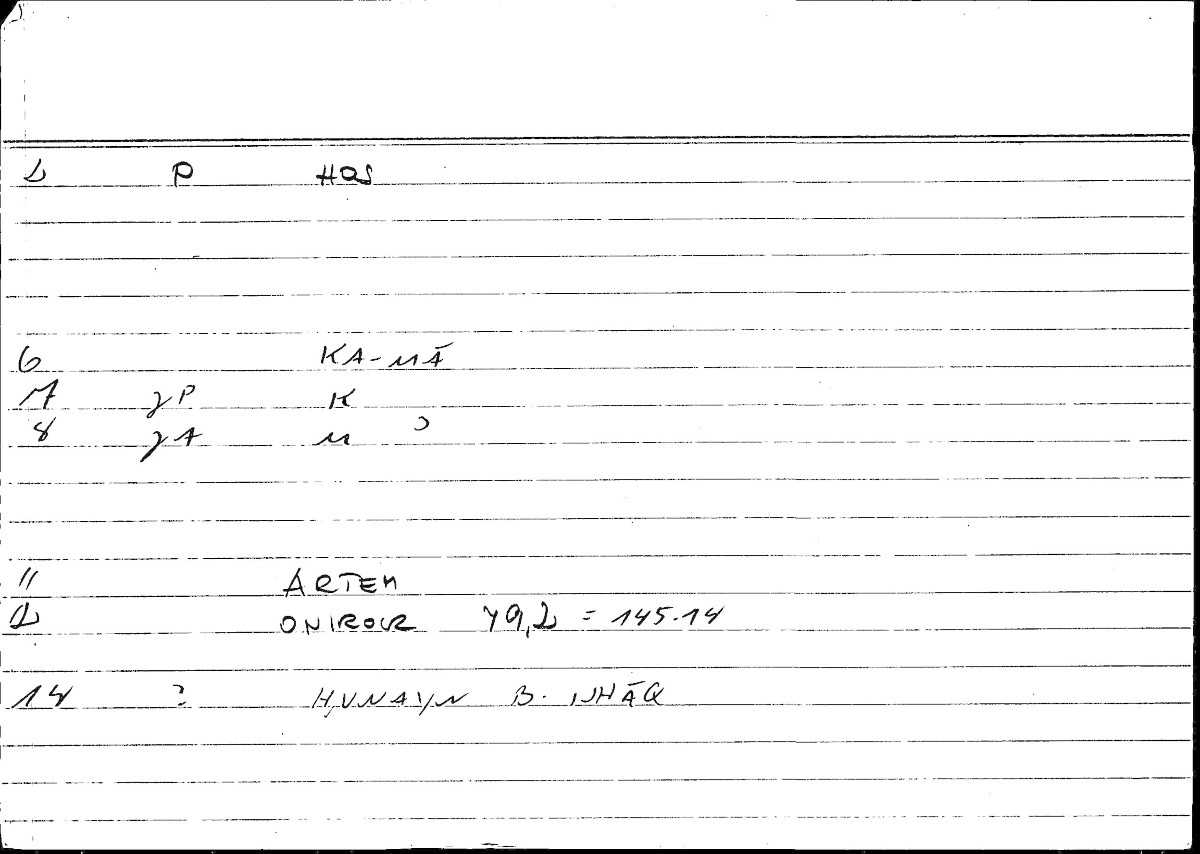 2 P HQS
6 KA-MĀ
7 γP K
8 γA M ʾ
11 ARTEM
12 ONIROCR 79,2 = 145.14
14 ? ḤUNAYN B. ISḤĀQ